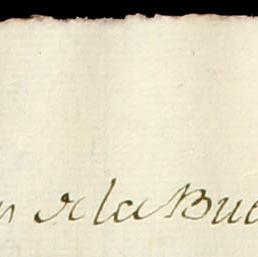 de la Bue